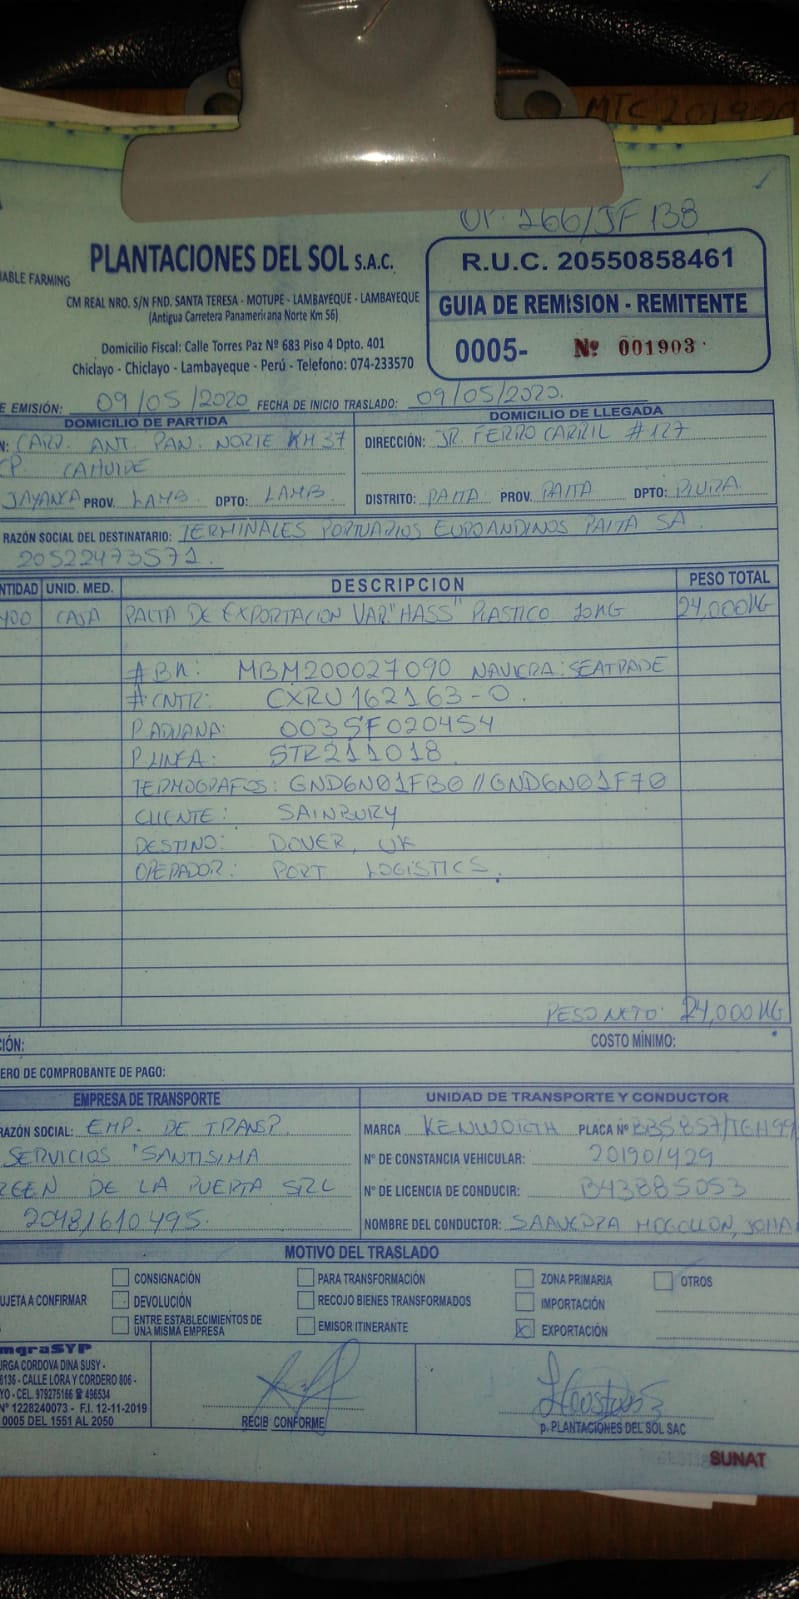 MTC 2019
OP. 166/JF 138
PLANTACIONES DEL SOL S.A.C.
ABLE FARMING
CM REAL NRO. S/N FND. SANTA TERESA - MOTUPE - LAMBAYEQUE - LAMBAYEQUE
(Antigua Carretera Panamericana Norte Km 56)
Domicilio Fiscal: Calle Torres Paz Nº 683 Piso 4 Dpto. 401
Chiclayo - Chiclayo - Lambayeque - Perú - Telefono: 074-233570
R.U.C. 20550858461
GUIA DE REMISION - REMITENTE
0005- Nº 001903
E EMISIÓN: 09/05/2020 FECHA DE INICIO TRASLADO: 09/05/2020.
DOMICILIO DE PARTIDA
N: CARR. ANT. PAN. NORTE KM 37
CP. CAHUIDE
JAYANCA PROV. LAMB. DPTO: LAMB.
DOMICILIO DE LLEGADA
DIRECCIÓN: JR. FERROCARRIL #127
DISTRITO: PAITA PROV. PAITA DPTO: PIURA.
RAZÓN SOCIAL DEL DESTINATARIO: TERMINALES PORTUARIOS EUROANDINOS PAITA SA.
20522473571.
NTIDAD UNID. MED. DESCRIPCION PESO TOTAL
400 CAJA PALTA DE EXPORTACION VAR "HASS" PLASTICO 10KG 24,000KG
#BK: MBM200027090 NAVIERA: SEATRADE
#CNTR: CXRU162163-0.
P. ADUANA: 003SF020454
P. LINEA: STR211018.
TERMOGRAFOS: GND6N01FB0 // GND6N01F70
CLIENTE: SAINBURY
DESTINO: DOVER, UK
OPERADOR: PORT LOGISTICS.
PESO NETO: 24,000 KG
CIÓN: COSTO MÍNIMO:
ERO DE COMPROBANTE DE PAGO:
EMPRESA DE TRANSPORTE
RAZÓN SOCIAL: EMP. DE TRANSP.
SERVICIOS "SANTISIMA
DE LA PUERTA SRL
20481610495.
UNIDAD DE TRANSPORTE Y CONDUCTOR
MARCA KENWORTH PLACA Nº
Nº DE CONSTANCIA VEHICULAR: 201901429
Nº DE LICENCIA DE CONDUCIR: B43885053
NOMBRE DEL CONDUCTOR: SAAVEDRA MOGOLLON,
MOTIVO DEL TRASLADO
UJETA A CONFIRMAR
CONSIGNACIÓN
DEVOLUCIÓN
ENTRE ESTABLECIMIENTOS DE
UNA MISMA EMPRESA
PARA TRANSFORMACIÓN
RECOJO BIENES TRANSFORMADOS
EMISOR ITINERANTE
ZONA PRIMARIA
IMPORTACIÓN
EXPORTACIÓN
OTROS
mgraSYP
URGA CORDOVA DINA SUSY -
6136 - CALLE LORA Y CORDERO 806 -
YO - CEL. 979275166 ☎ 496534
Nº 1228240073 - F.I. 12-11-2019
0005 DEL 1551 AL 2050
RECIBI CONFORME
p. PLANTACIONES DEL SOL SAC
SUNAT